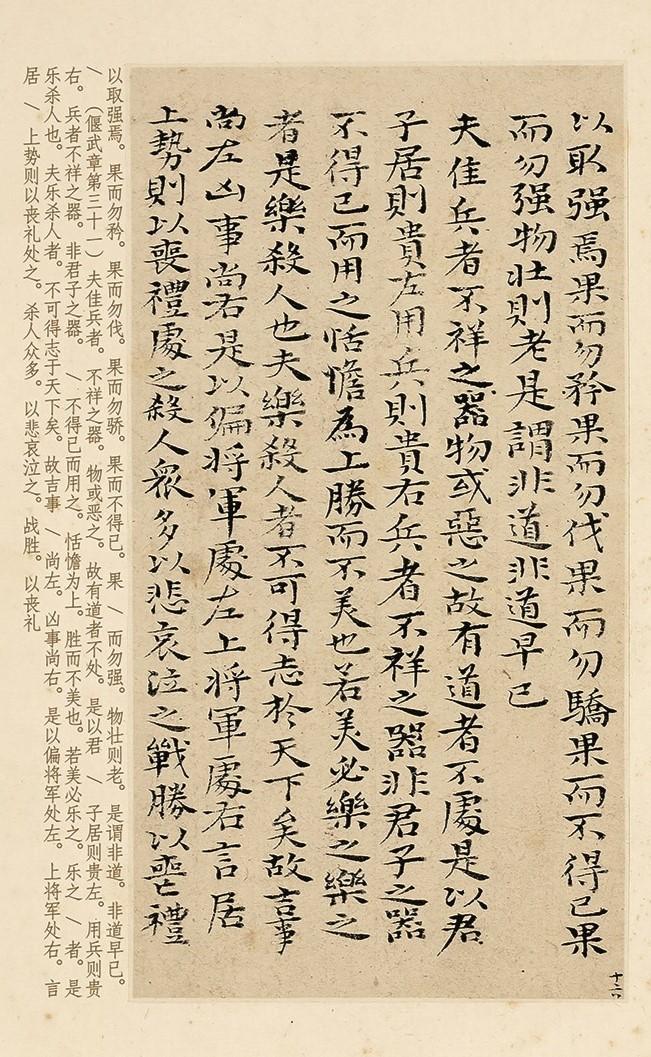 以取强焉果而勿矜果而勿伐果而勿驕果而不得已果
而勿强物壮則老是謂非道非道早已
夫佳兵者不祥之器物或惡之故有道者不處是以君
子居則貴左用兵則貴右兵者不祥之器非君子之器
不得已而用之恬憺為上勝而不美也若美必樂之樂之
者是樂殺人也夫樂殺人者不可得志於天下矣故吉事
尚左凶事尚右是以偏将軍處左上将軍處右言居
上勢則以喪禮處之殺人衆多以悲哀泣之戰勝以喪禮
以取强焉。果而勿矜。果而勿伐。果而勿骄。果而不得已。果 / 而勿强。物壮则老。是谓非道。非道早已。
/ (偃武章第三十一) 夫佳兵者。不祥之器。物或恶之。故有道者不处。是以君 / 子居则贵左。用兵则贵
右。兵者不祥之器。非君子之器。 / 不得已而用之。恬憺为上。胜而不美也。若美必乐之。乐之 / 者。是
乐杀人也。夫乐杀人者。不可得志于天下矣。故吉事 / 尚左。凶事尚右。是以偏将军处左。上将军处右。言
居 / 上势则以丧礼处之。杀人众多。以悲哀泣之。战胜。以丧礼